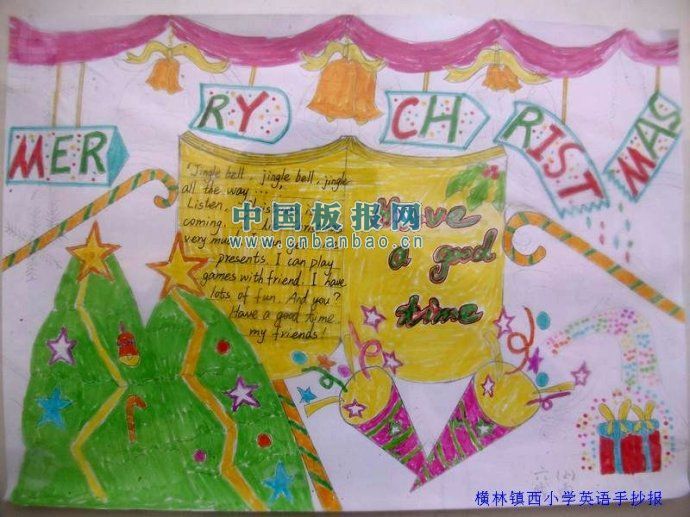 MERRY CHRISTMAS
"Jingle bell, jingle bell, jingle
all the way..."
Listen,
coming.
very mu
presents. I can play
games with friend. I have
lots of fun. And you?
Have a good time
my friends!
Have
a good
time
中国板报网
www.cnbanbao.cn
横林镇西小学英语手抄报